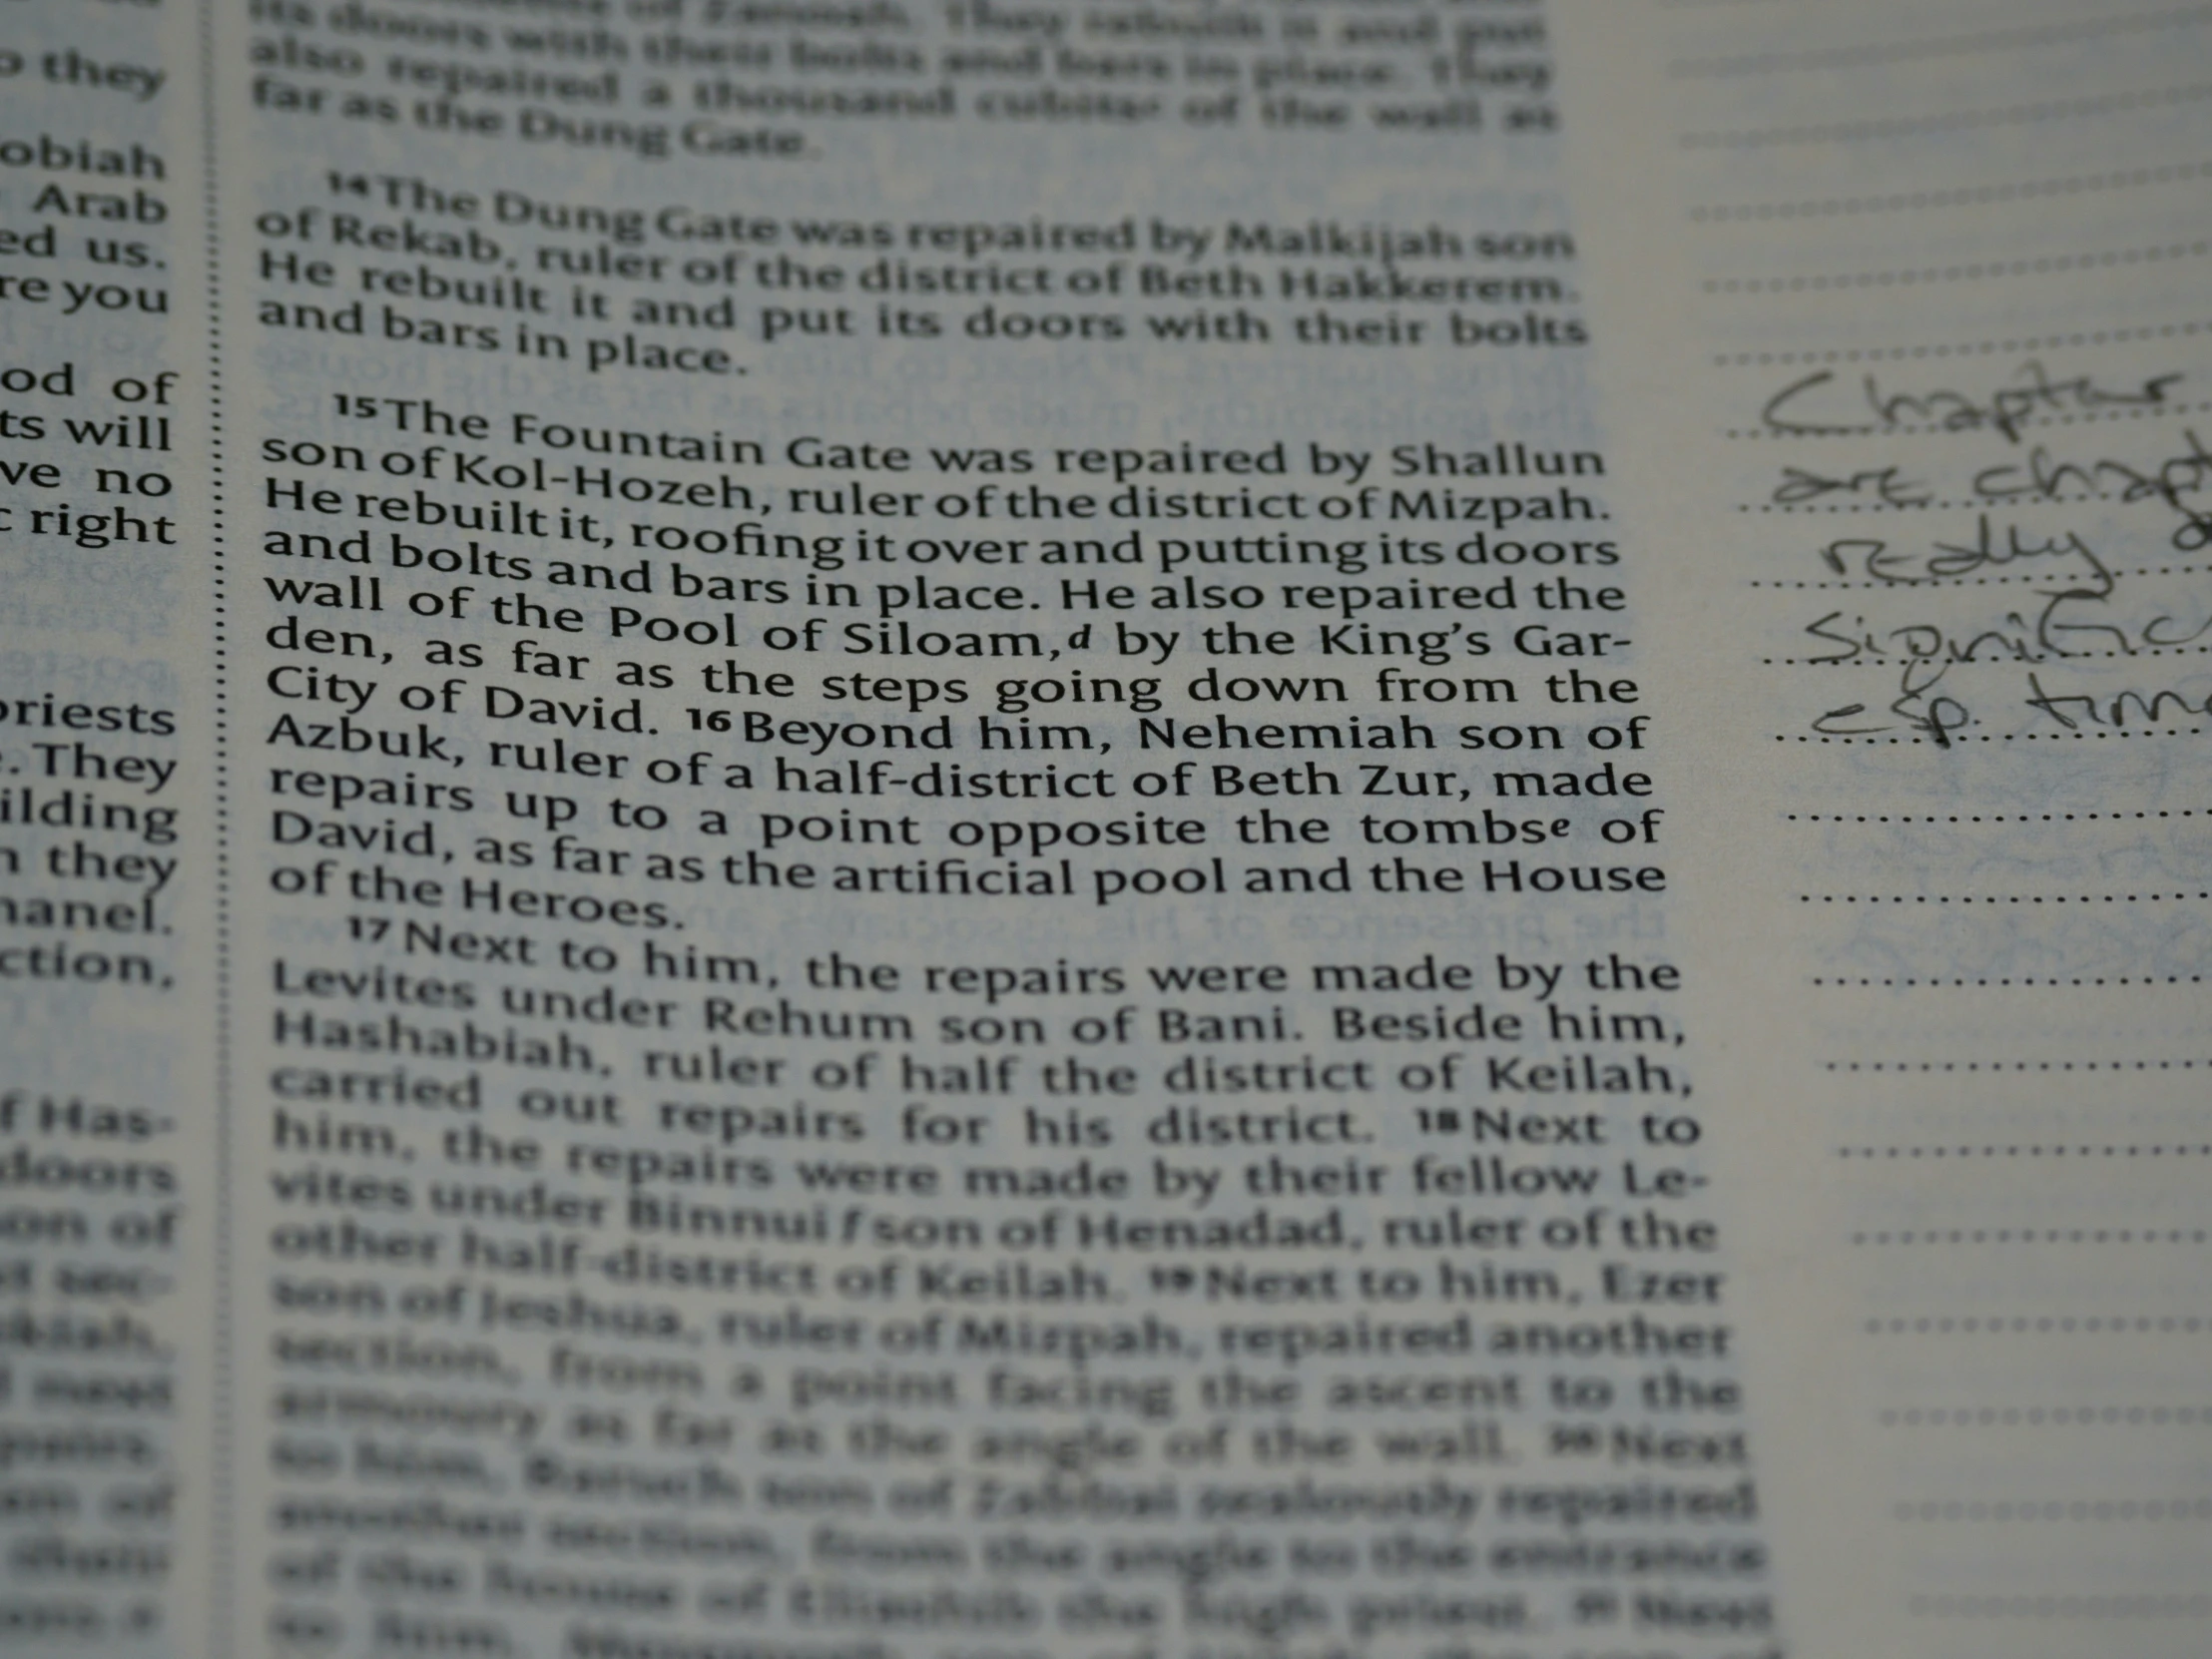 o they
obiah
Arab
ed us.
re you
od of
ts will
ve no
right
priests
. They
ilding
they
hanel.
ction,
f Has-
doors
on of
sec-
its doors with their bolts and bars in place. They
also repaired a thousand cubits of the wall as
far as the Dung Gate.
14 The Dung Gate was repaired by Malkijah son
of Rekab, ruler of the district of Beth Hakkerem.
He rebuilt it and put its doors with their bolts
and bars in place.
15 The Fountain Gate was repaired by Shallun
son of Kol-Hozeh, ruler of the district of Mizpah.
He rebuilt it, roofing it over and putting its doors
and bolts and bars in place. He also repaired the
wall of the Pool of Siloam,d by the King's Gar-
den, as far as the steps going down from the
City of David. 16 Beyond him, Nehemiah son of
Azbuk, ruler of a half-district of Beth Zur, made
repairs up to a point opposite the tombse of
David, as far as the artificial pool and the House
of the Heroes.
17 Next to him, the repairs were made by the
Levites under Rehum son of Bani. Beside him,
Hashabiah, ruler of half the district of Keilah,
carried out repairs for his district. 18 Next to
him, the repairs were made by their fellow Le-
vites under Binnui f son of Henadad, ruler of the
other half-district of Keilah. 19 Next to him, Ezer
son of Jeshua, ruler of Mizpah, repaired another
section, from a point facing the ascent to the
armoury as far as the angle of the wall. 20 Next
to him, Baruch son of Zabbai zealously repaired
another section, from the angle to the entrance
of the house of Eliashib the high priest. 21 Next
to him,
Chapter
are chapt
really
Signific
esp. time